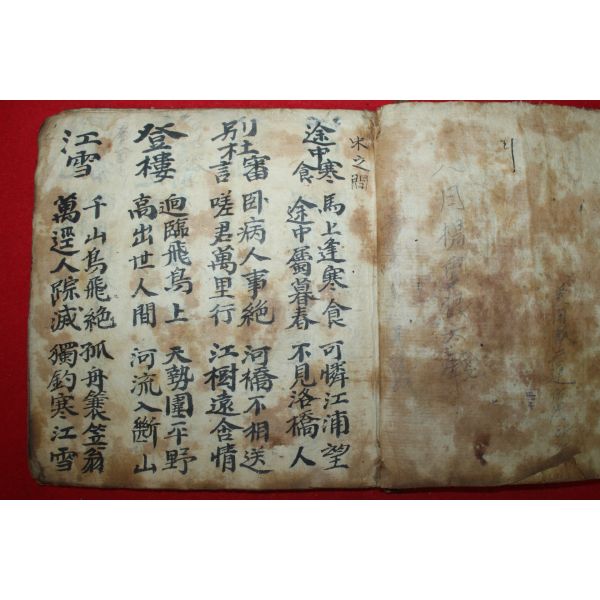 宋之問
途中寒食
馬上逢寒食
途中屬暮春
可憐江浦望
不見洛橋人
別杜審言
臥病人事絶
嗟君萬里行
河橋不相送
江樹遠含情
登樓
迥臨飛鳥上
高出世人間
天勢圍平野
河流入斷山
江雪
千山鳥飛絶
萬逕人蹤滅
孤舟簑笠翁
獨釣寒江雪